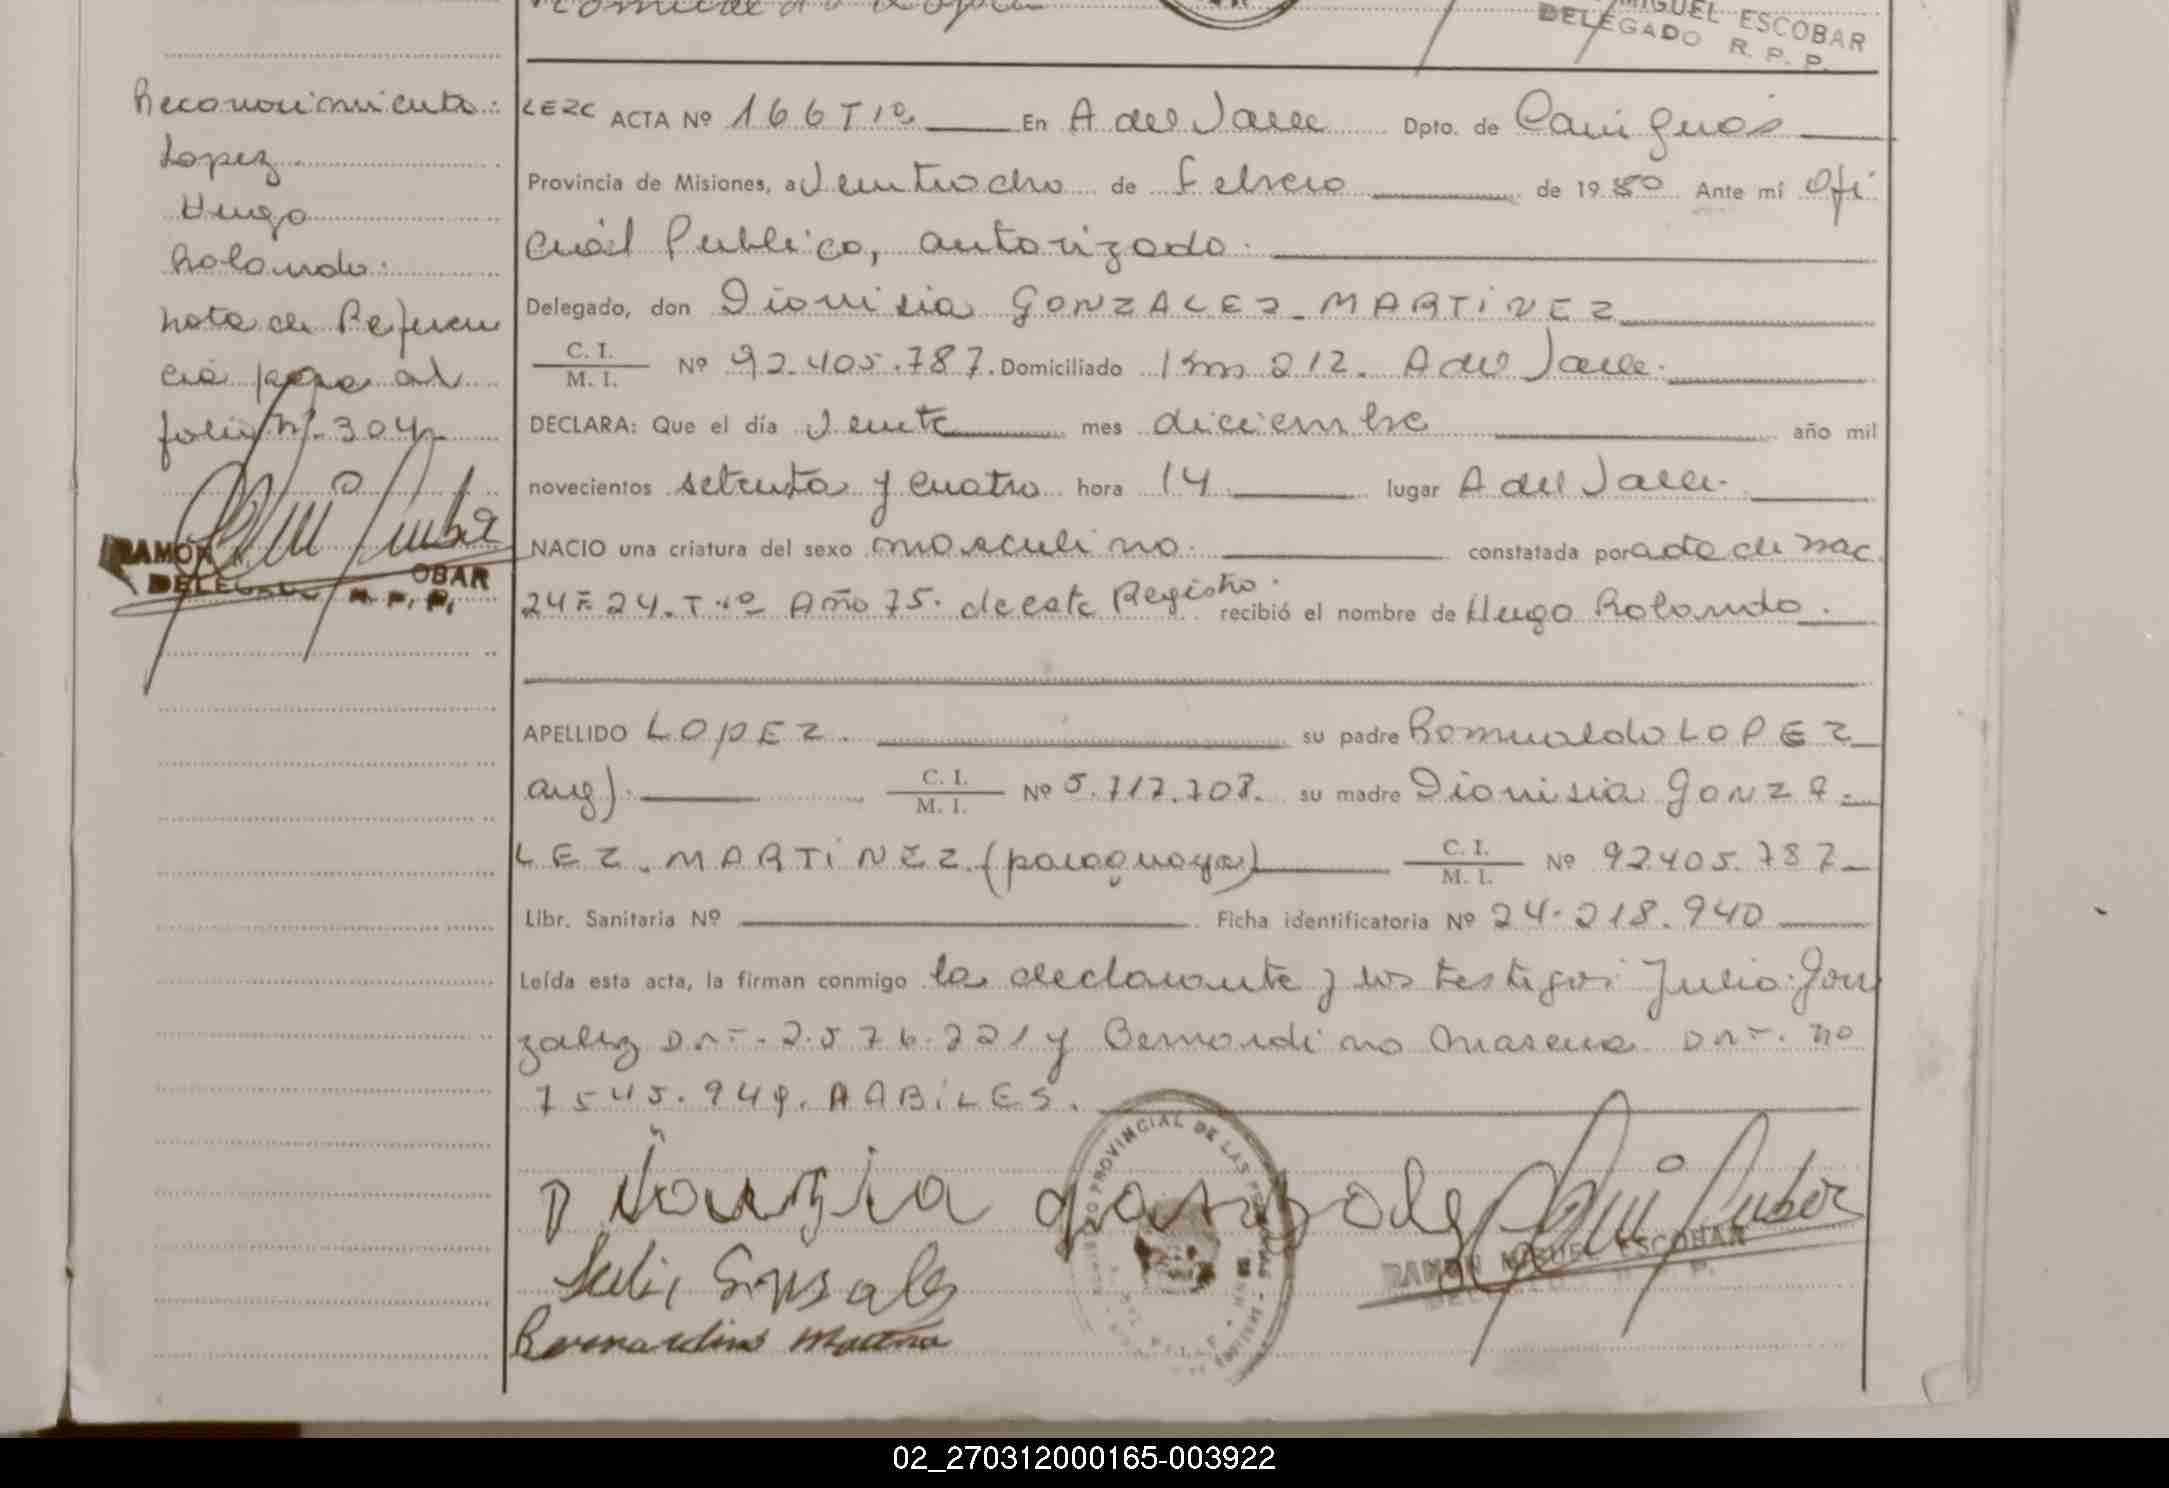 MIGUEL ESCOBAR
DELEGADO R. P. P.
Reconocimiento:
Lopez
Hugo
Rolando.
nota de Referen
cia pasa al
folio Nº 304
RAMON
DELEG OBAR
R. P. P.
LEZC ACTA Nº 166 T 1º En A del Valle Dpto. de Cainguas
Provincia de Misiones, a Veintiocho de Febrero de 1980 Ante mí Ofi
cial Publico, autorizado.
Delegado, don Dionisia GONZALEZ - MARTINEZ
C. I.
M. I. Nº 92.405.787. Domiciliado Km 212. A del Valle.
DECLARA: Que el día Veinte mes diciembre año mil
novecientos setenta y cuatro hora 14 lugar A del Valle.
NACIO una criatura del sexo masculino. constatada por acta de nac
24 F= 24. T 1º Año 75. de este Registro. recibió el nombre de Hugo Rolando.
APELLIDO LOPEZ. su padre Romualdo LOPEZ
arg). C. I.
M. I. Nº 5.717.708. su madre Dionisia GONZA-
LEZ - MARTINEZ (paraguaya) C. I.
M. I. Nº 92405.787
Libr. Sanitaria Nº Ficha identificatoria Nº 24.218.940
Leída esta acta, la firman conmigo la declarante y los testigos Julio Gon
zalez 2.576.221 y Bernardino no
7545.949. AABILES.
REGISTRO PROVINCIAL DE LAS PERSONAS
Julio Gonsales
Bernardino
RAMON MIGUEL ESCOBAR
DELEGADO R. P. P.
02_270312000165-003922